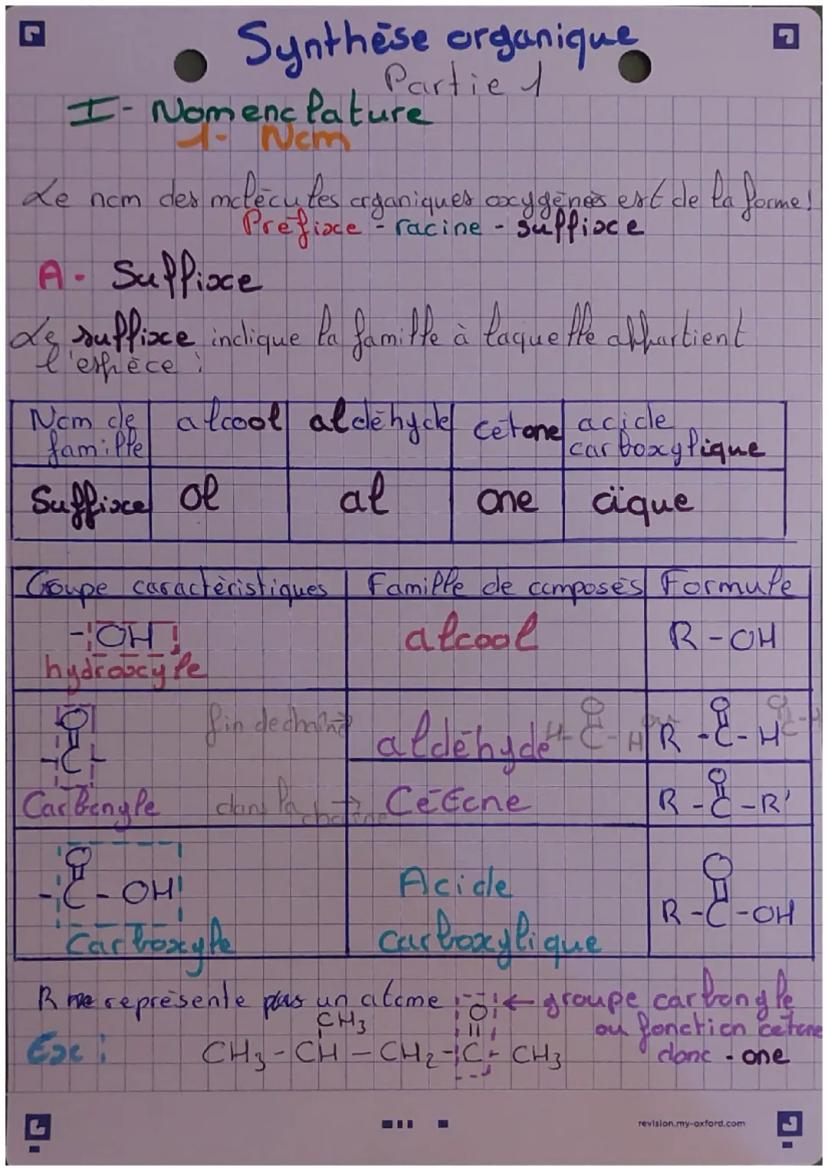 Synthèse organique
Partie 1
I- Nomenclature
1- Nom
Le nom des molécules organiques oxygénées est de la forme:
Préfixe - racine - suffixe
A- Suffixe
Le suffixe indique la famille à laquelle appartient
l'espèce :
Nom de famille | alcool | aldéhyde | cétone | acide carboxylique
Suffixe | ol | al | one | oïque
Goupe caractéristiques | Famille de composés | Formule
-OH | alcool | R-OH
hydroxyle
O
fin de chaîne → aldéhyde
-C-
H-C-H
R-C-H
Carbonyle | dans la chaîne → Cétone | R-C-R'
O
-C-OH | Acide carboxylique | R-C-OH
Carboxyle
R ne représente pas un atome
O ← groupe carbonyle
CH3
ou fonction cétone
Ex : CH3-CH-CH2-C-CH3
donc -one
revision.my-oxford.com